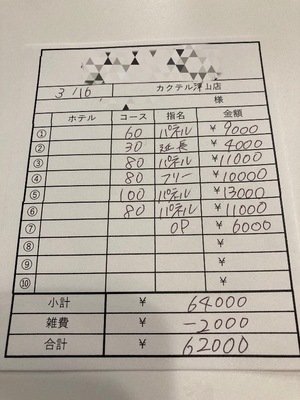 3/16 カクテル津山店
様
ホテル コース 指名 金額
① 60 パネル ¥9000
② 30 延長 ¥4000
③ 80 パネル ¥11000
④ 80 フリー ¥10000
⑤ 100 パネル ¥13000
⑥ 80 パネル ¥11000
⑦ OP ¥6000
⑧ ¥
⑨ ¥
⑩ ¥
小計 ¥ 64000
雑費 ¥ -2000
合計 ¥ 62000